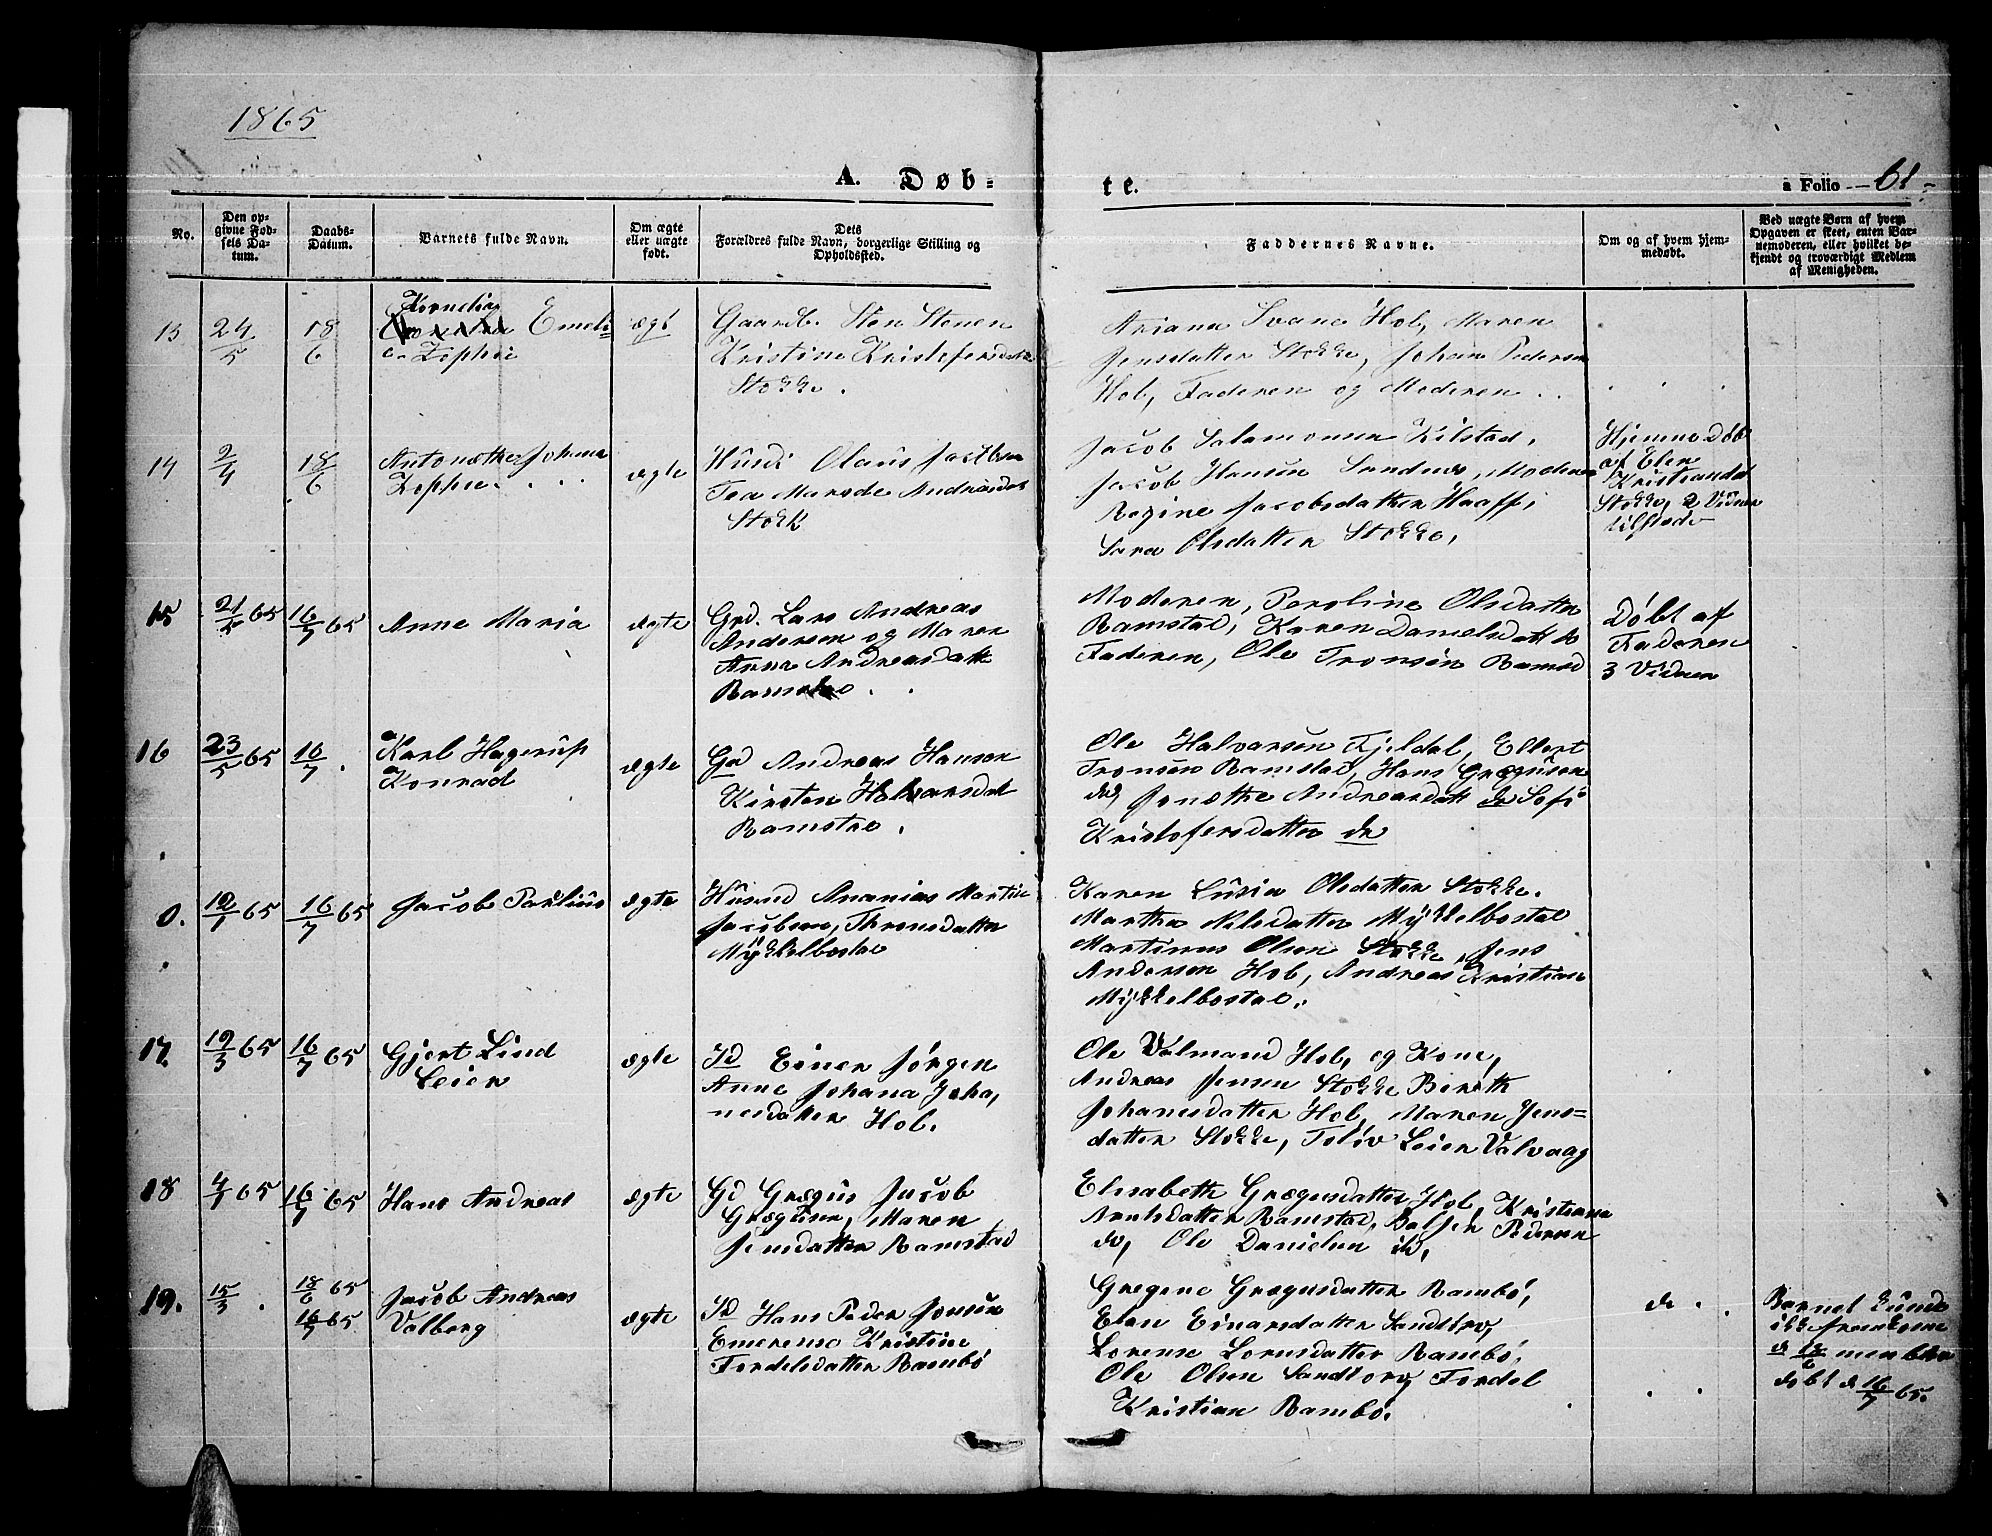 1865
A. Døb-
te.
a Folio 61.
No.
Den op-
givne Fød-
sels Da-
tum.
Daabs-
Datum.
Barnets fulde Navn.
Om ægte
eller uægte
født.
Dets
Forældres fulde Navn, borgerlige Stilling og
Opholdssted.
Faddernes Navne.
Om og af hvem hjem-
medøbt.
Ved uægte Børn af hvem
Opgaven er skeet, enten Bar-
nemoderen, eller hvilket be-
kjendt og troværdigt Medlem
af Menigheden.
13
24/5
18/6
Kornelia
Emeli-
e. Zephie
ægt
Gaardb. Sten Stenen
Kristine Kristofersdatt
Stokke.
Ariana Svane Hol, Maren
Jensdatter Stokke, Johan Pedersen
Hol, Faderen og Moderen..
14
2/4
18/6
Antonætha Johana
Zephie...
ægte
Husd: Olaus Jacobsen
Tea Marsde Andreasdat
Stokk
Jacob Salamonsen Kilstad,
Jacob Hansen Sandnes, Moderen
Regine Jacobsdatter Haaff,
Sara Olsdatter Stokke,
Hjemmedøbt
af Elen
Kristiansdat
Stokke, 2 Vidner
tilstede
15
21/5 65
16/7 65
Anne Maria
ægte
Grd. Lars Andreas
Andersen og Maren
Anne Andreasdatt
Ramstad..
Moderen, Peroline Olsdatter
Ramstad, Karen Danielsdatt do
Faderen, Ole Tronsen Ramsd
Døbt af
Faderen
3 Vidner
16
23/5 65
16/7.
Karl Hagerup
Konrad
ægte
Gd Andreas Hansen
Kirsten Halvarsdat
Ramstad.
Ole Halvarsen Fjeldal, Ellert
Tronsen Ramstad, Hans Grægusen
do, Jonætha Andreasdatt do Sofi
Kristofersdatter do
0.
12/7 65
16/7 65
Jacob Paulius
ægte
Husmd Ananias Martin
Jacobsen, Thronsdatter
Mykkelbostad
Karen Lusia Olsdatter Stokke.
Martha Nilsdatter Mykkelbostad
Martinus Olsen Stokke, Jens
Andersen Hol, Andreas Kristian
Mykkelbostad.
17
12/3 65
16/7 65
Gjert Lind
Leier
ægte
Id Einer Jørgen
Anne Johana Joha,
nesdatter Hol.
Ole Valmand Hol, og Kone,
Andreas Jensen Stokke Berith
Johanesdatter Hol, Maren Jens=
datter Stokke, Toløv Leier Valvaag
18
4/7 65
16/7 65
Hans Andreas
ægte
Gd Grægus Jacob
Grægusen, Maren
Jensdatter Ramstad
Elisabeth Grægusdatter Hol, Kristianna
Arntsdatter Ramstad, Balser Pedersen
do, Ole Danielsen do,
19.
15/3.
18/6 65
16/7 65
Jacob Andreas
Valberg
ægte
Id Hans Peder Jonsen
Emerense Kristine
Fordelsdatter Rambø
Gregine Grægusdatter Rambø,
Elen Einarsdatter Sandtorv,
Lorense Lornsdatter Rambø,
Ole Olsen Sandtorv, Fordel
Kristian Rambø.
do..
Barnet kunde
ikke fremkome
d 18/6 men blev
døbt d 16/7 65.